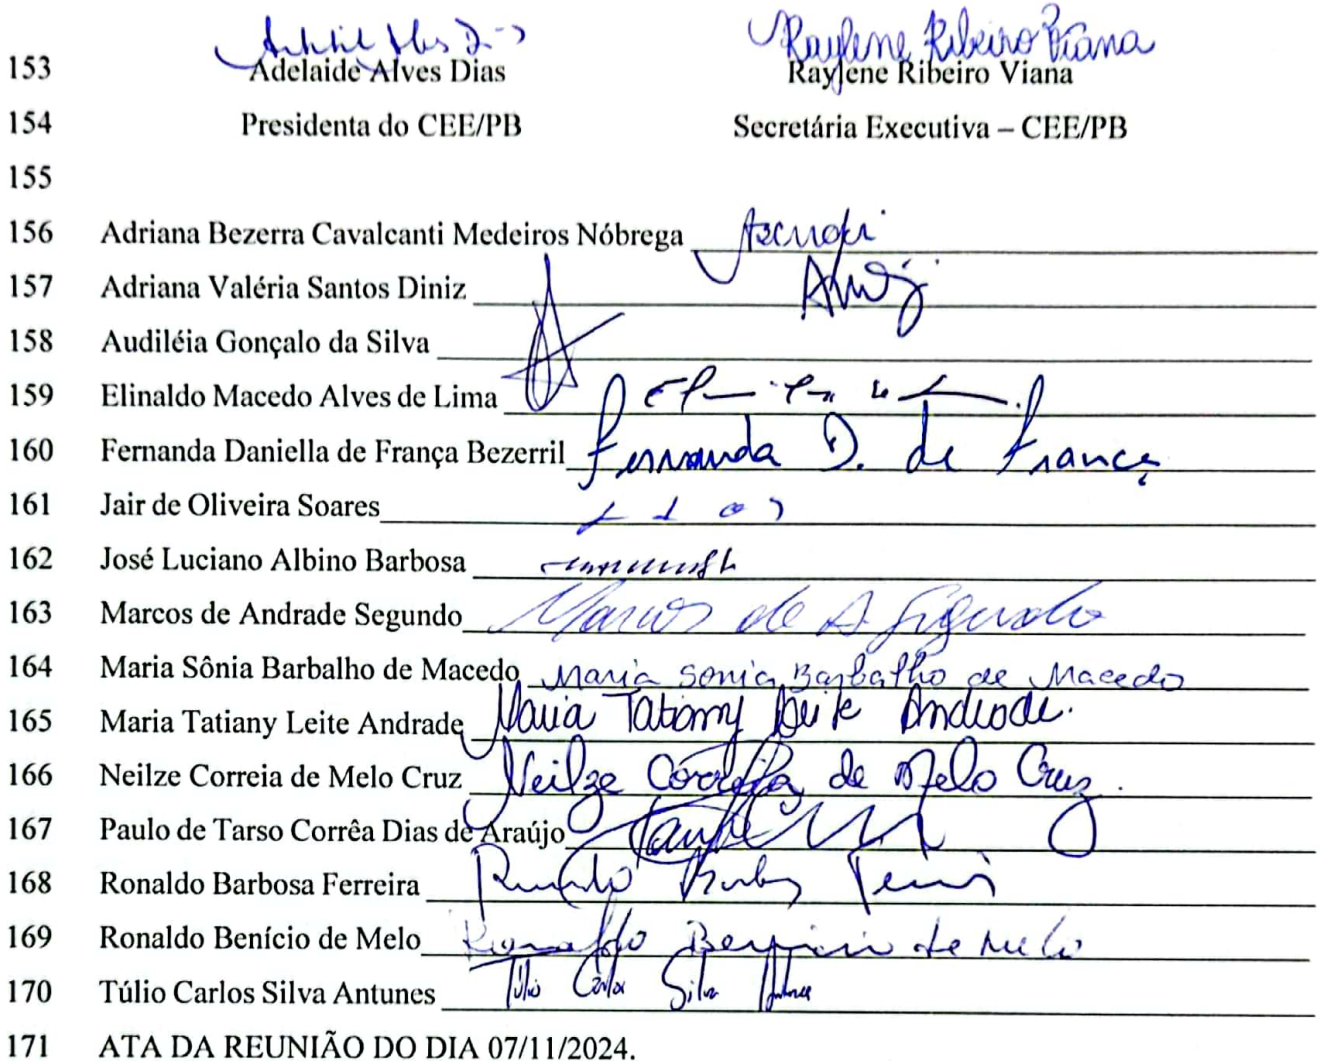 Raylene Ribeiro Viana
153 Adelaide Alves Dias Raylene Ribeiro Viana
154 Presidenta do CEE/PB Secretária Executiva – CEE/PB
155
156 Adriana Bezerra Cavalcanti Medeiros Nóbrega
157 Adriana Valéria Santos Diniz
158 Audiléia Gonçalo da Silva
159 Elinaldo Macedo Alves de Lima
160 Fernanda Daniella de França Bezerril Fernanda D. de França
161 Jair de Oliveira Soares
162 José Luciano Albino Barbosa
163 Marcos de Andrade Segundo Marcos de A Segundo
164 Maria Sônia Barbalho de Macedo Maria Sonia Barbalho de Macedo
165 Maria Tatiany Leite Andrade Maria Tatiany Leite Andrade.
166 Neilze Correia de Melo Cruz Neilze Correia de Melo Cruz.
167 Paulo de Tarso Corrêa Dias de Araújo
168 Ronaldo Barbosa Ferreira
169 Ronaldo Benício de Melo Ronaldo Benicio de Melo
170 Túlio Carlos Silva Antunes Túlio Carlos Silva Antunes
171 ATA DA REUNIÃO DO DIA 07/11/2024.